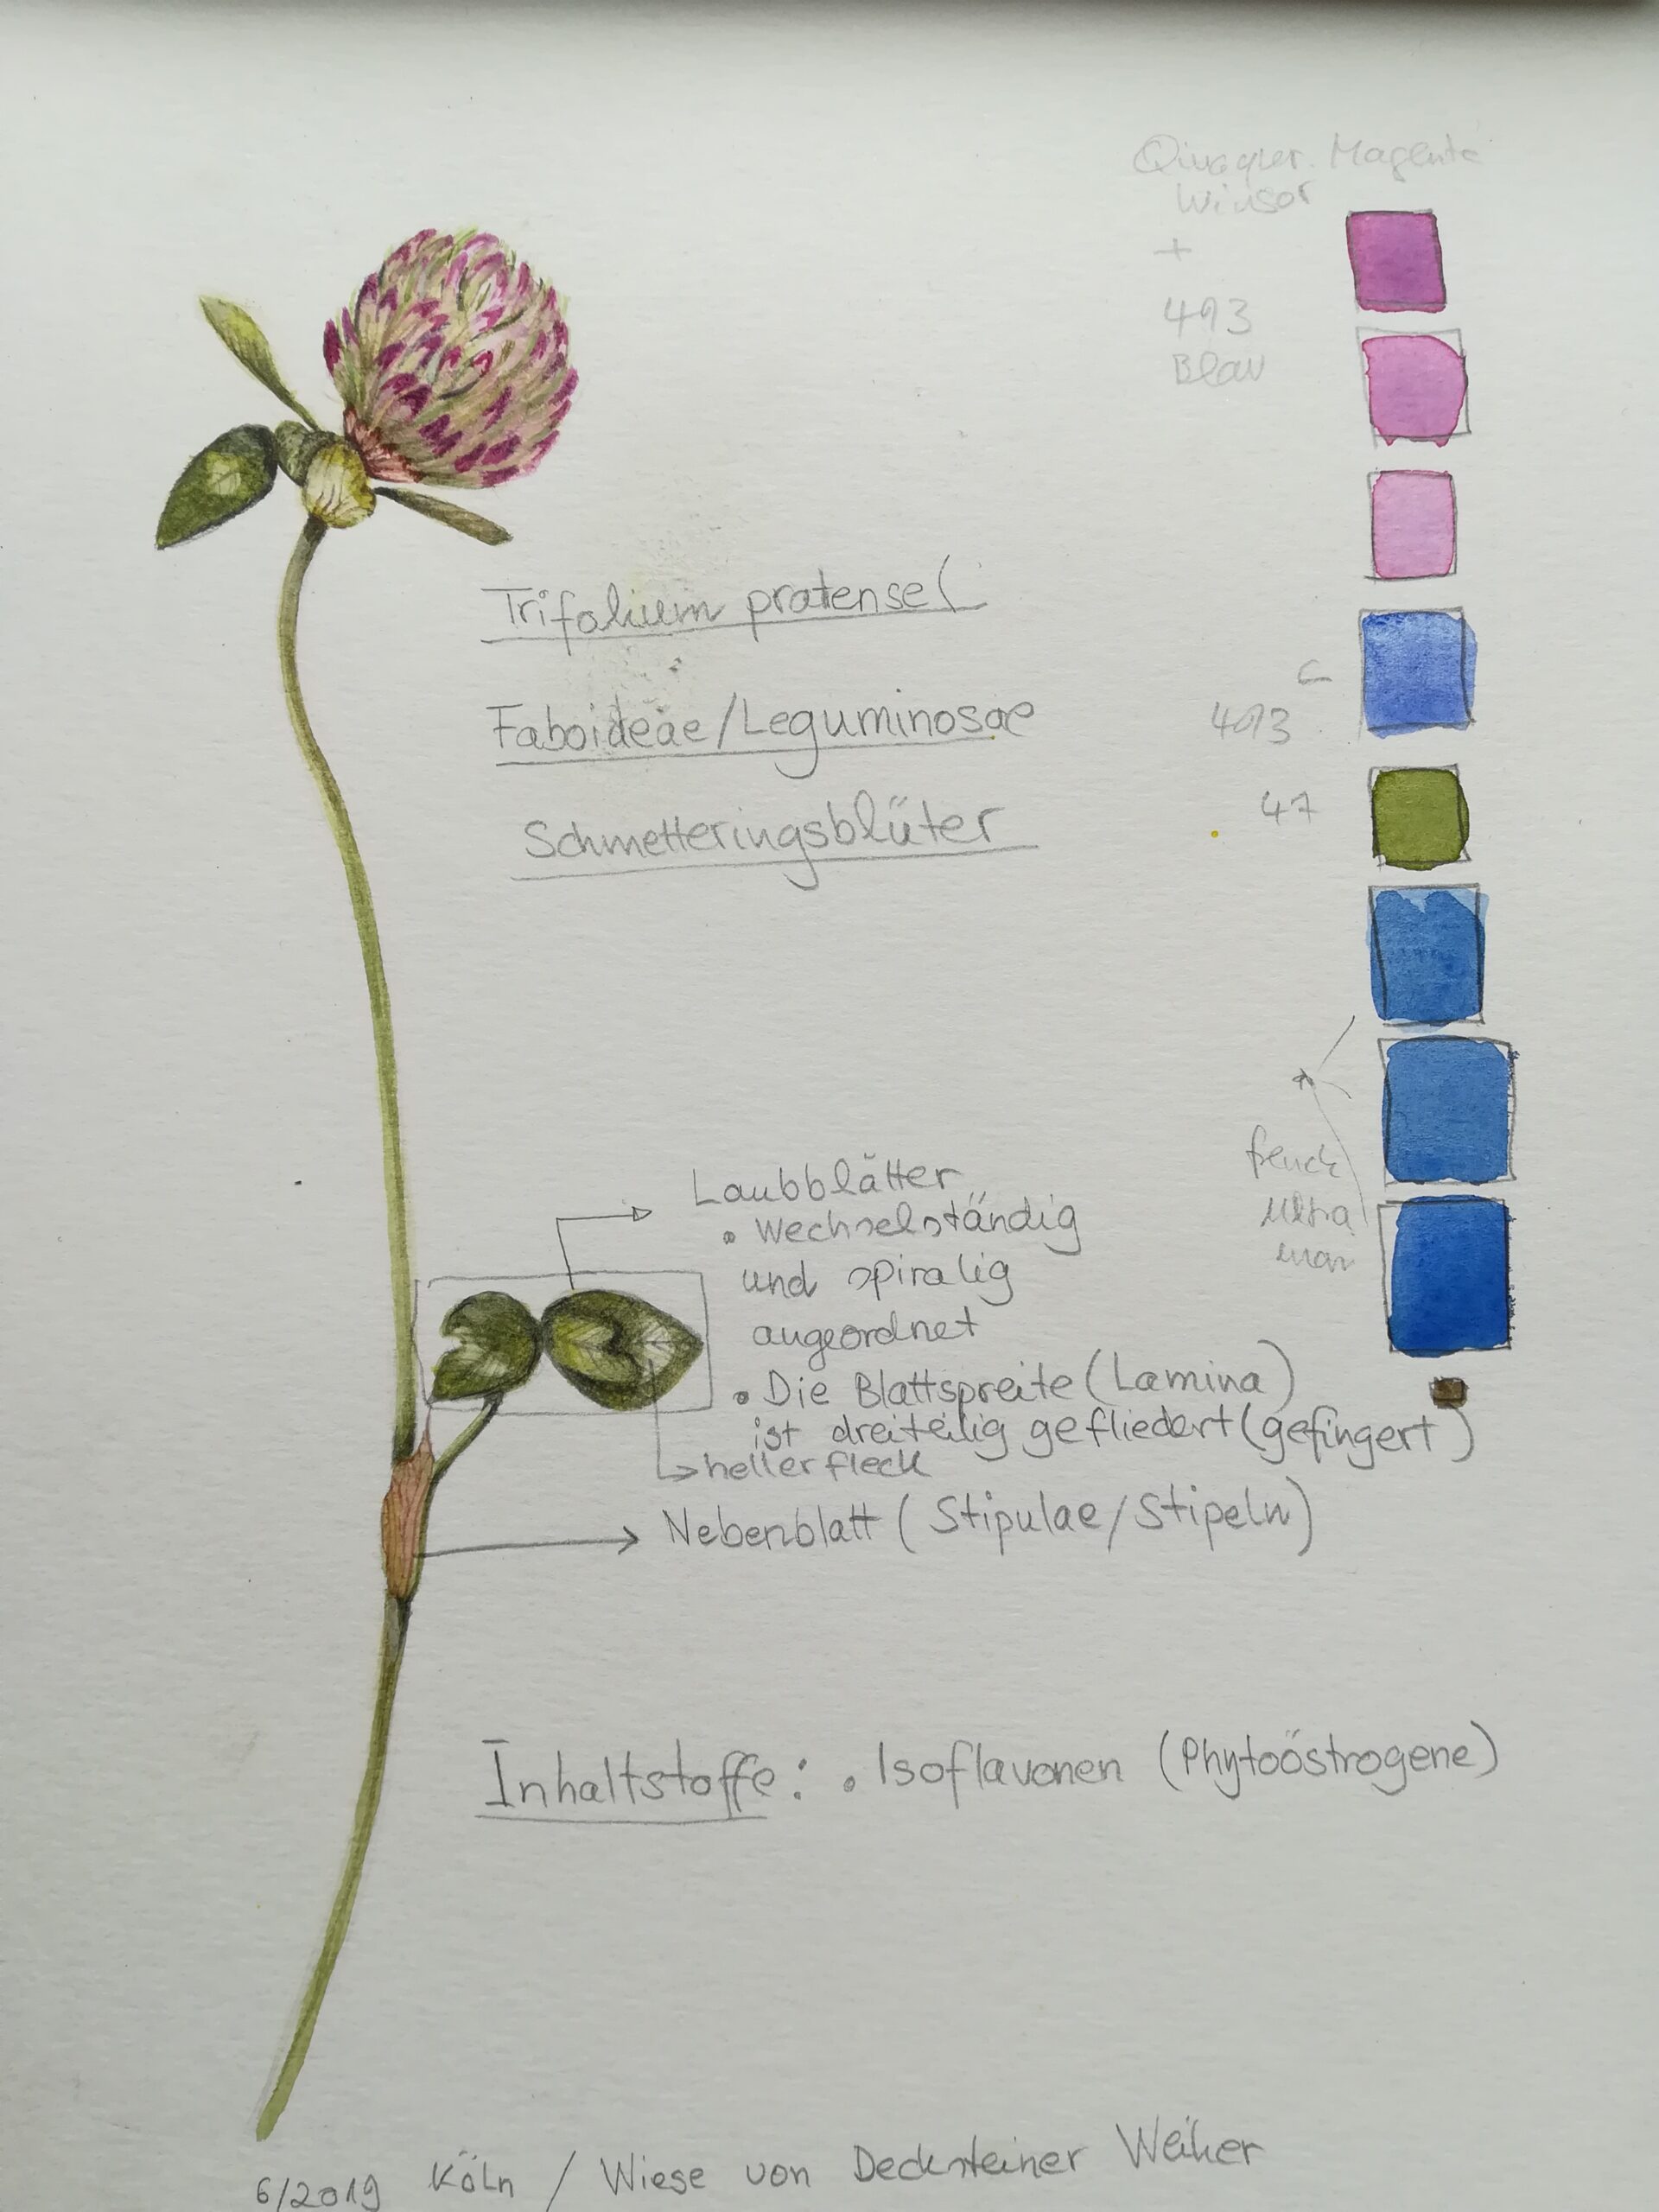 Magenta
Winsor
+
493
Blau
Trifolium pratense L
Faboideae/Leguminosae
Schmetteringsblüter
493
47
Ultra
mar
Laubblätter
• Wechselständig
und spiralig
angeordnet
• Die Blattspreite (Lamina)
ist dreiteilig gefliedert (gefingert)
heller fleck
Nebenblatt (Stipulae/Stipeln)
Inhaltstoffe: • Isoflavonen (Phytoöstrogene)
6/2019 Köln / Wiese von Decksteiner Weiher